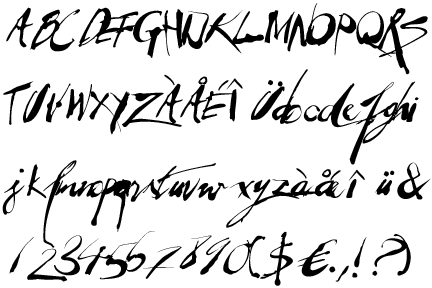 ABCDEFGHIJKLMNOPQRS
TUVWXYZÀÅÉÎ Üabcdefghi
jklmnopqrstuvwxyzàåéîü&
1234567890($€.,!?)